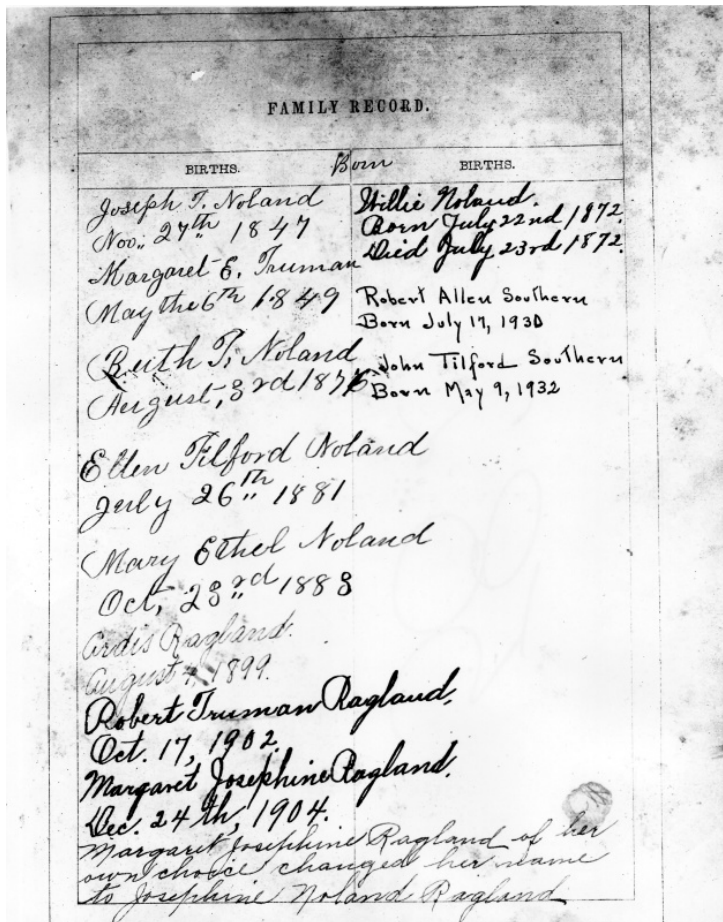 FAMILY RECORD.
BIRTHS.
Born
BIRTHS.
Joseph T. Noland
Nov. 27th 1847
Margaret E. Truman
May the 6th 1849
Ruth T. Noland
August, 3rd 1876
Ellen Tilford Noland
July 26th 1881
Mary Ethel Noland
Oct, 23rd 1883
Ardis Ragland.
August 7, 1899.
Robert Truman Ragland.
Oct. 17, 1902.
Margaret Josephine Ragland.
Dec. 24th, 1904.
Margaret Josephine Ragland of her
own choice changed her name
to Josephine Noland Ragland
Willie Noland.
Born July 22nd 1872.
Died July 23rd 1872.
Robert Allen Southern
Born July 17, 1930
John Tilford Southern
Born May 9, 1932